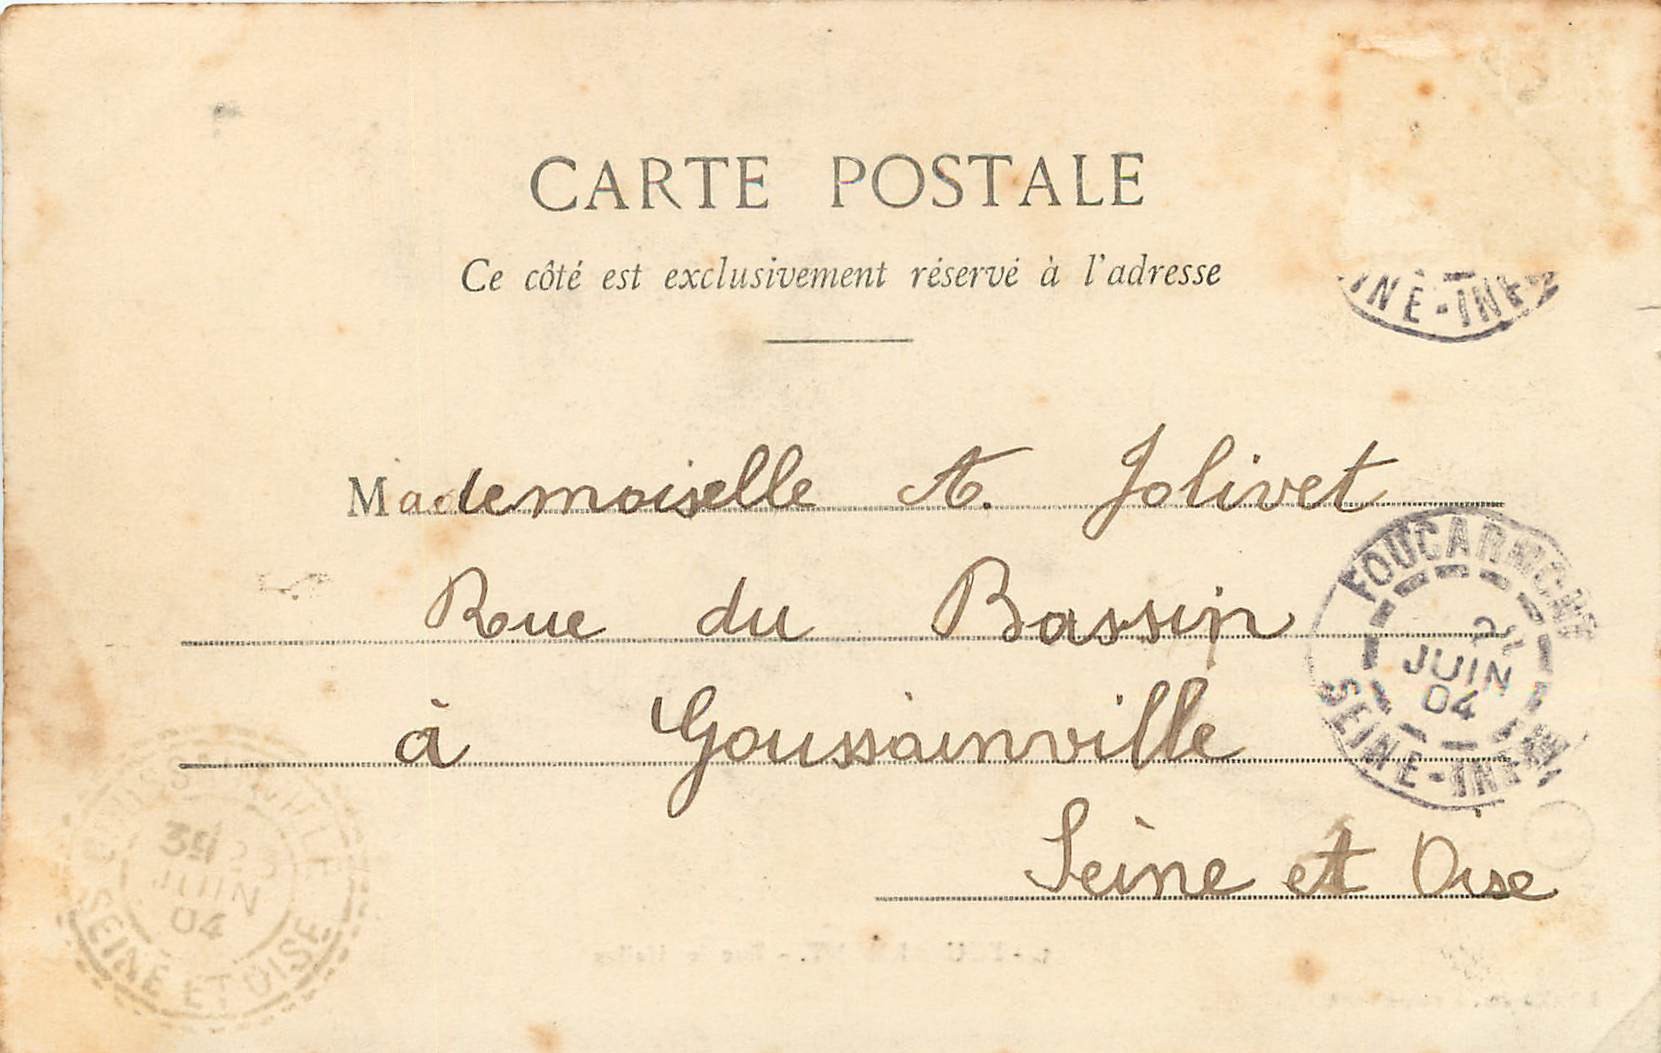 CARTE POSTALE
Ce côté est exclusivement réservé à l'adresse
INE-INF
Mademoiselle A. Jolivet
Rue du Bassin
à Goussainville
Seine et Oise
FOUCARMONT
JUIN
04
SEINE-INF
3E 23
JUIN
04
SEINE ET OISE